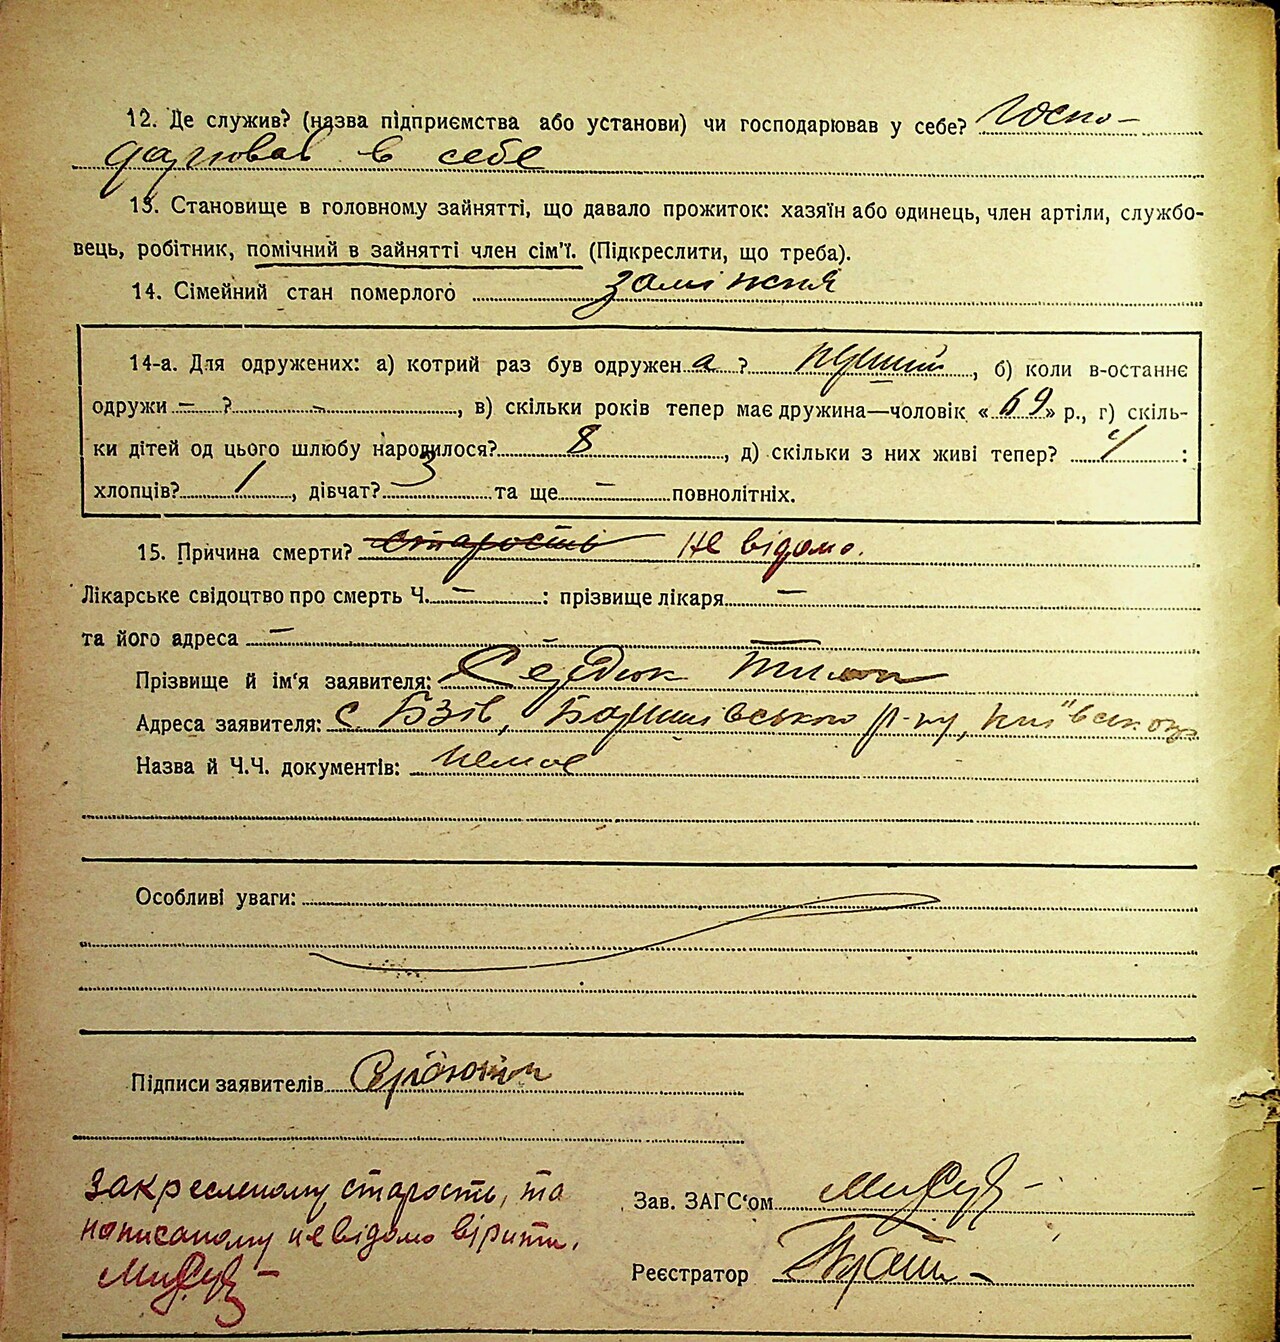 12. Де служив? (назва підприємства або установи) чи господарював у себе? Госпо-
дарював в себе
13. Становище в головному зайнятті, що давало прожиток: хазяїн або одинець, член артіли, службо-
вець, робітник, помічний в зайнятті член сім'ї. (Підкреслити, що треба).
14. Сімейний стан померлого заміжня
14-а. Для одружених: а) котрий раз був одружен а ? перший, б) коли в-останнє
одружи – ? –, в) скільки років тепер має дружина—чоловік «69» р., г) скіль-
ки дітей од цього шлюбу народилося? 8, д) скільки з них живі тепер? 4:
хлопців? 1, дівчат? 3 та ще – повнолітніх.
15. Причина смерти? старость Не відомо.
Лікарське свідоцтво про смерть Ч. –: прізвище лікаря –
та його адреса –
Прізвище й ім'я заявителя:
Адреса заявителя: с. Бзів, Баришівського р-ну, Київської
Назва й Ч.Ч. документів: немає
Особливі уваги:
Підписи заявителів
Закресленому старость, та
написаному не відомо вірити.
Зав. ЗАГС'ом
Реєстратор